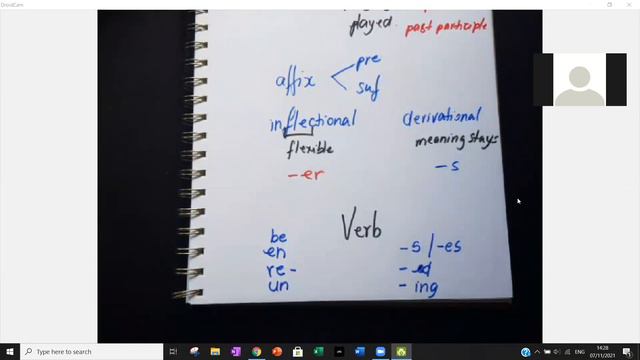 DroidCam
played.
past participle
affix
pre
suf
inflectional
derivational
flexible
meaning stays
-er
-s
Verb
be
en
re-
un
-s/-es
-ed
-ing
Type here to search
ENG
14:28
07/11/2021